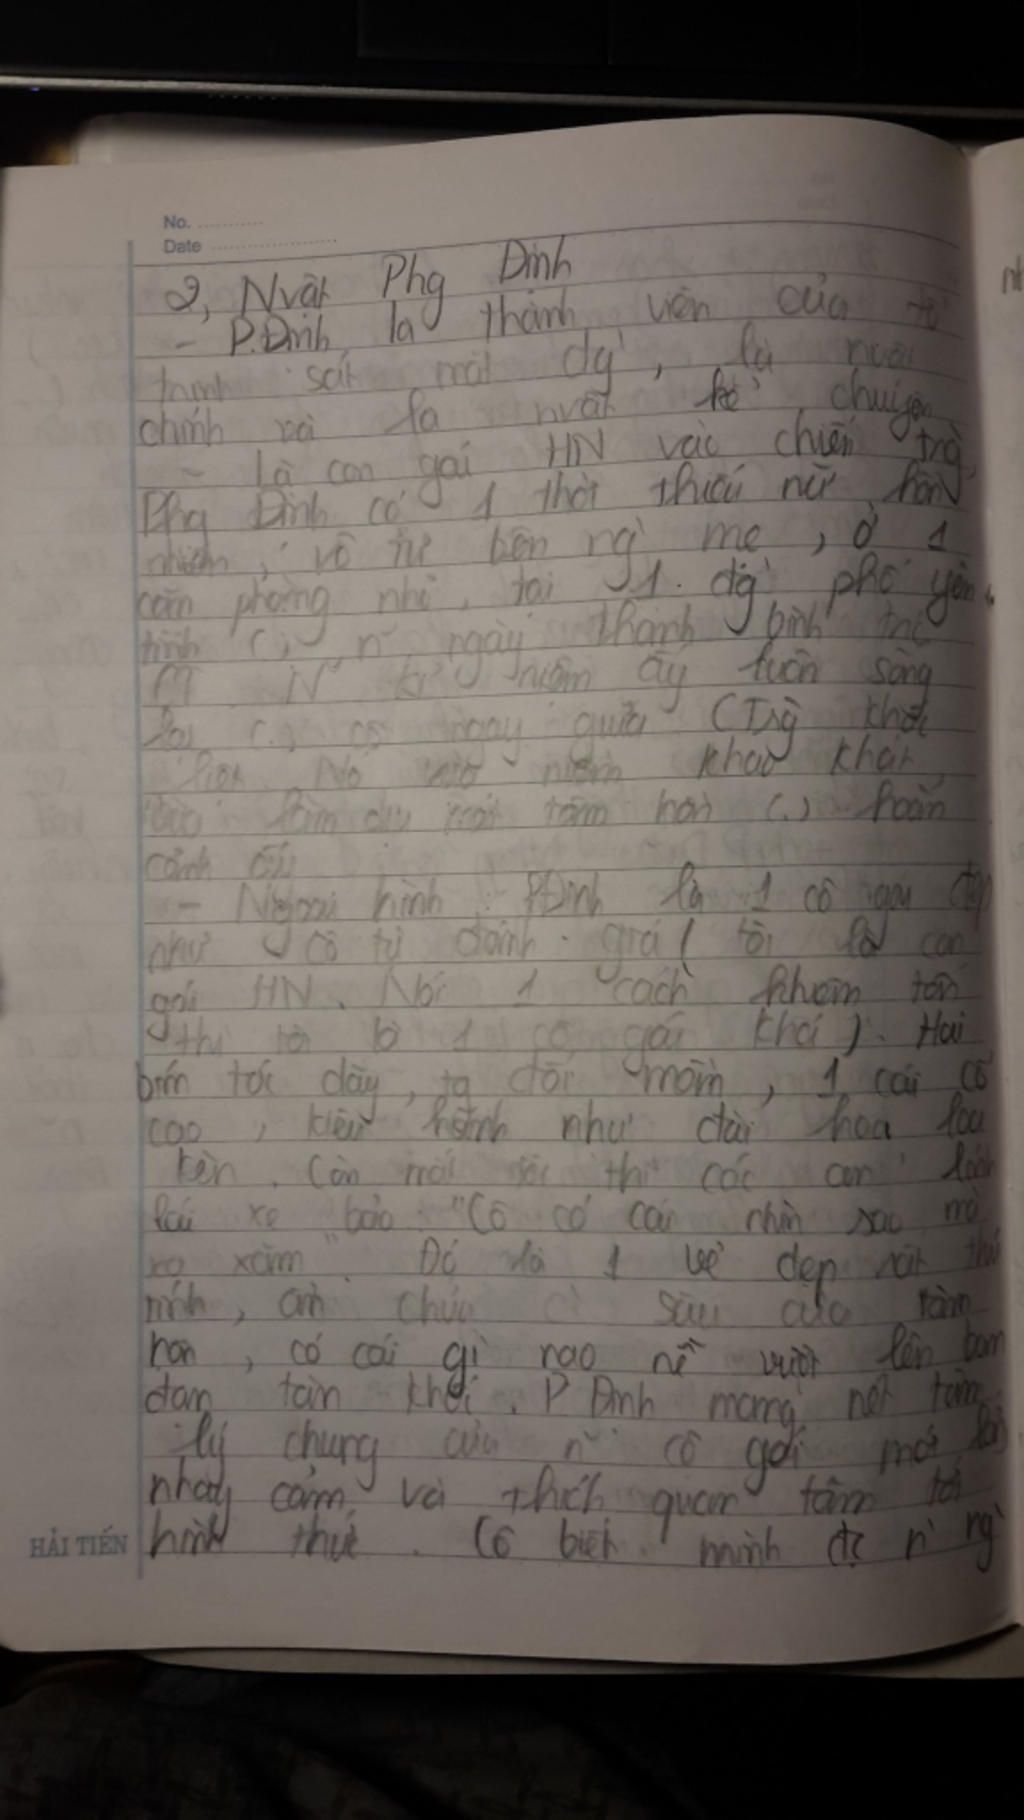 No. ............
Date ....................
2, Nvật Phg Định
- P.Định la thành viên của tổ
trinh sát mặt dg', là nvật
chính và là nvật kể chuyện
- Là con gái HN vào chiến trg,
Phg Định có 1 thời thiếu nữ hồn
nhiên, vô tư bên ng' mẹ, ở 1
căn phòng nhỏ, tại 1 dg' phố yên
tĩnh (.) n~ ngày thanh bình
N~ kỉ niệm ấy luôn sống
lại (.) cô ngay giữa CTrg khốc
liệt. Nó vừa niềm khao khát,
làm dịu mát tâm hồn (.) hoàn
cảnh
- Ngoại hình: P.Định là 1 cô gái đẹp
như cô tự đánh giá ( tôi là con
gái HN. Nói 1 cách khiêm tốn
thì tôi là 1 cô gái khá ). Hai
bím tóc dày, tg đối mềm, 1 cái cổ
cao, kiêu hãnh như đài hoa loa
kèn. Còn mắt tôi thì các anh
lái xe bảo "Cô có cái nhìn sao mà
xa xăm". Đó là 1 vẻ đẹp rất
mình, ánh sâu của tâm
hồn, có cái gì vượt lên bom
đạn tàn khốc. P Định mang nét tâm
lý chung của n~ cô gái mới lớn
nhạy cảm và thích quan tâm tới
hình thức. Cô biết mình đc n` ng`
HẢI TIẾN